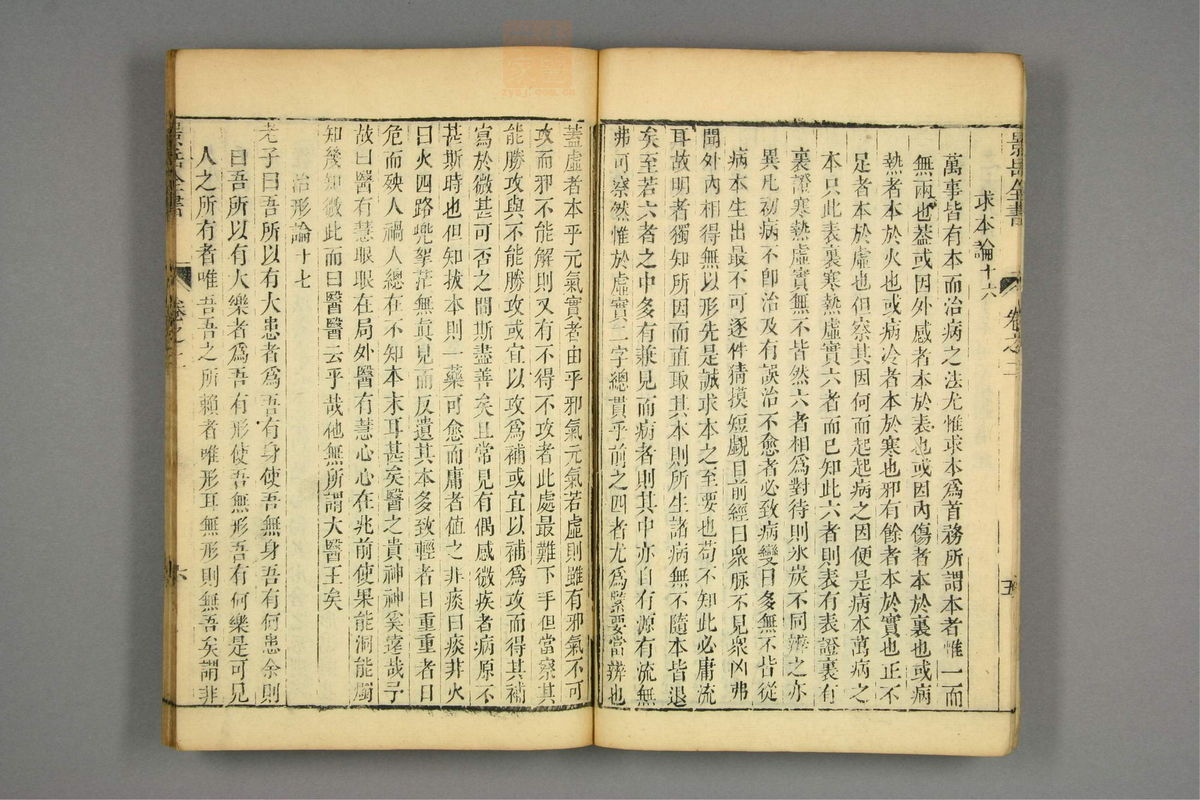 景岳全書 卷之二 五
求本論十六
萬事皆有本而治病之法尤惟求本爲首務所謂本者惟一而
無兩也蓋或因外感者本於表也或因內傷者本於裏也或病
熱者本於火也或病冷者本於寒也邪有餘者本於實也正不
足者本於虛也但察其因何而起起病之因便是病本萬病之
本只此表裏寒熱虛實六者而已知此六者則表有表證裏有
裏證寒熱虛實無不皆然六者相爲對待則氷炭不同辨之亦
異凡初病不卽治及有誤治不愈者必致病變日多無不皆從
病本生出最不可逐件猜摸短覷目前經曰衆脉不見衆凶弗
聞外內相得無以形先是誠求本之至要也苟不知此必庸流
耳故明者獨知所因而直取其本則所生諸病無不隨本皆退
矣至若六者之中多有兼見而病者則其中亦自有源有流無
弗可察然惟於虛實二字總貫乎前之四者尤爲緊要當辨也
蓋虛者本乎元氣實者由乎邪氣元氣若虛則雖有邪氣不可
攻而邪不能解則又有不得不攻者此處最難下手但當察其
能勝攻與不能勝攻或宜以攻爲補或宜以補爲攻而得其補
寫於微甚可否之間斯盡善矣且常見有偶感微疾者病原不
甚斯時也但知拔本則一藥可愈而庸者值之非痰曰痰非火
曰火四路兜拏茫無眞見而反遺其本多致輕者日重重者日
危而殃人禍人總在不知本末耳甚矣醫之貴神神奚遠哉予
故曰醫有慧眼眼在局外醫有慧心心在兆前使果能洞能燭
知幾知微此而曰醫醫云乎哉他無所謂大醫王矣
治形論十七
老子曰吾所以有大患者爲吾有身使吾無身吾有何患余則
曰吾所以有大樂者爲吾有形使吾無形吾有何樂是可見
人之所有者唯吾吾之所賴者唯形耳無形則無吾矣謂非
景岳全書 卷之二 六